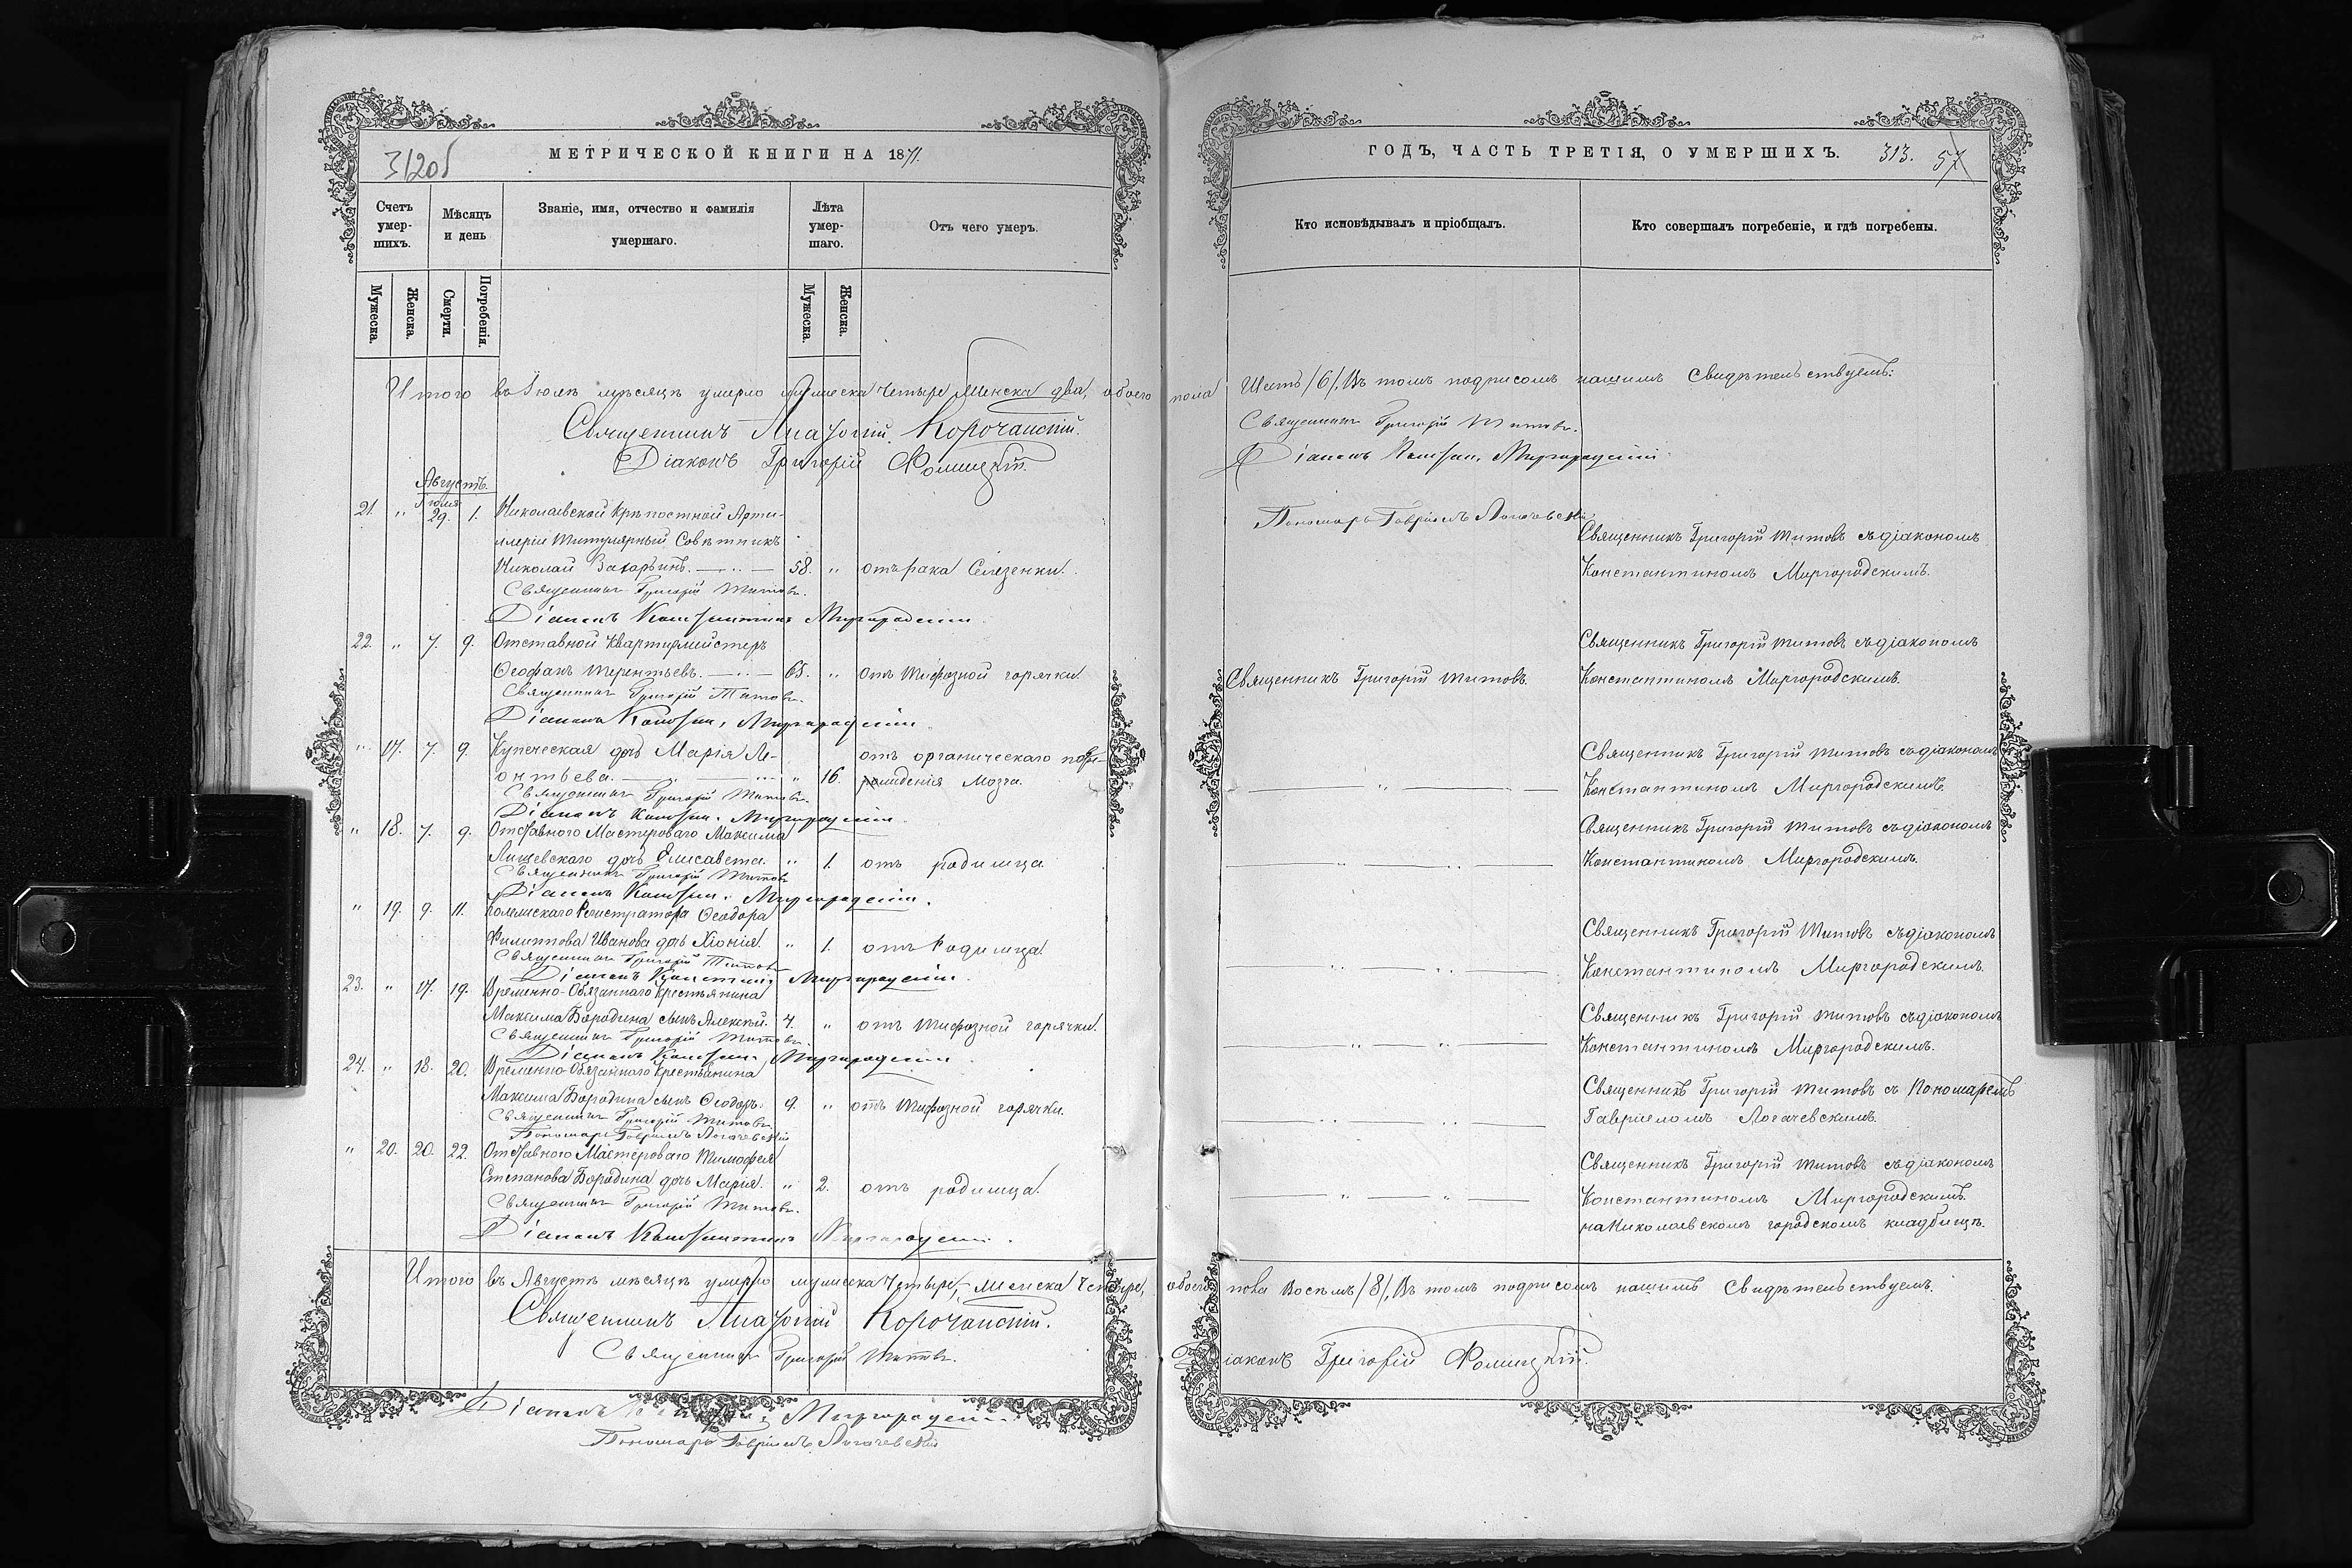 312об
МЕТРИЧЕСКОЙ КНИГИ НА 1871.
Счетъ умер-шихъ.
Мѣсяцъ и день
Званіе, имя, отчество и фамилія умершаго.
Лѣта умер-шаго.
Отъ чего умеръ.
Мужеска.
Женска.
Смерти.
Погребенія.
Мужеска.
Женска.
Итого въ Іюлѣ мѣсяцѣ умерло мужеска четыре, женска два, обоего
Священникъ Анатолій Корочанскій.
Діаконъ Григорій Фомицкій
Августъ.
Іюля
21. " 29. 1. Николаевской Крѣпостной Арти-
ллеріи Титулярный Совѣтникъ
Николай Захарьинъ. 58. " отъ рака Селезенки.
Священникъ Григорій Титовъ.
Діаконъ Константинъ Миргородскій
22. " 7. 9. Отставной Квартирмейстеръ
Ѳеофанъ Терентьевъ. 65. " отъ тифозной горячки.
Священникъ Григорій Титовъ.
Діаконъ Констан. Миргородскій
" 17. 7. 9. Купеческая дочь Марія Ле-
онтьева. " 16. отъ органическаго
Мозга.
Священникъ Григорій Титовъ.
Діаконъ Констан. Миргородскій
" 18. 7. 9. Отставного Мастероваго Максима
дочь Елисавета. " 1. отъ родимца
Священникъ Григорій Титовъ
Діаконъ Констан. Миргородскій.
" 19. 9. 11. Колежскаго Регистратора Ѳеодора
Филиппова Иванова дочь Хіонія. " 1. отъ Родимца.
Священникъ Григорій Титовъ
Діаконъ Константинъ Миргородскій
23. " 17. 19. Временно-Обязаннаго Крестьянина
Максима Бородина сынъ Алексѣй. 4. " отъ тифозной горячки.
Священникъ Григорій Титовъ.
Діаконъ Констан. Миргородскій
24. " 18. 20. Временно-Обязанного Крестьянина
Максима Бородина сынъ Ѳеодоръ. 9. " отъ тифозной горячки.
Священникъ Григорій Титовъ.
Пономарь Гавріилъ Логачевскій
" 20. 20. 22. Отставного Мастероваго Тимофея
Степанова Бородина дочь Марія. " 2. отъ родимца.
Священникъ Григорій Титовъ.
Діаконъ Константинъ Миргородскій.
Итого въ Августѣ мѣсяцѣ умерло мужеска четыре, женска четыре,
Священникъ Анатолій Корочанскій.
Священникъ Григорій Титовъ.
Діаконъ Миргородскій
Пономарь Гавріилъ Логачевскій
ГОДЪ, ЧАСТЬ ТРЕТІЯ, О УМЕРШИХЪ. 313. 57
Кто исповѣдывалъ и пріобщалъ.
Кто совершалъ погребеніе, и гдѣ погребены.
пола Шесть /6/. Въ томъ подписомъ нашимъ Свидѣтельствуемъ:
Священникъ Григорій Титовъ.
Діаконъ Констан. Миргородскій
Пономарь Гавріилъ Логачевскій
Священникъ Григорій Титовъ съ діакономъ
Константиномъ Миргородскимъ.
Священникъ Григорій Титовъ съ діакономъ
Священникъ Григорій Титовъ. Константиномъ Миргородскимъ.
Священникъ Григорій Титовъ съ діакономъ
Константиномъ Миргородскимъ.
Священникъ Григорій Титовъ съ діакономъ
Константиномъ Миргородскимъ.
Священникъ Григорій Титовъ съ діакономъ
Константиномъ Миргородскимъ.
Священникъ Григорій Титовъ съ діакономъ
Константиномъ Миргородскимъ.
Священникъ Григорій Титовъ съ Пономаремъ
Гавріиломъ Логачевскимъ.
Священникъ Григорій Титовъ съ діакономъ
Константиномъ Миргородскимъ.
на Николаевскомъ городскомъ кладбищѣ.
обоего пола Восемь /8/, Въ томъ подписомъ нашимъ Свидѣтельствуемъ.
Діаконъ Григорій Фомицкій.